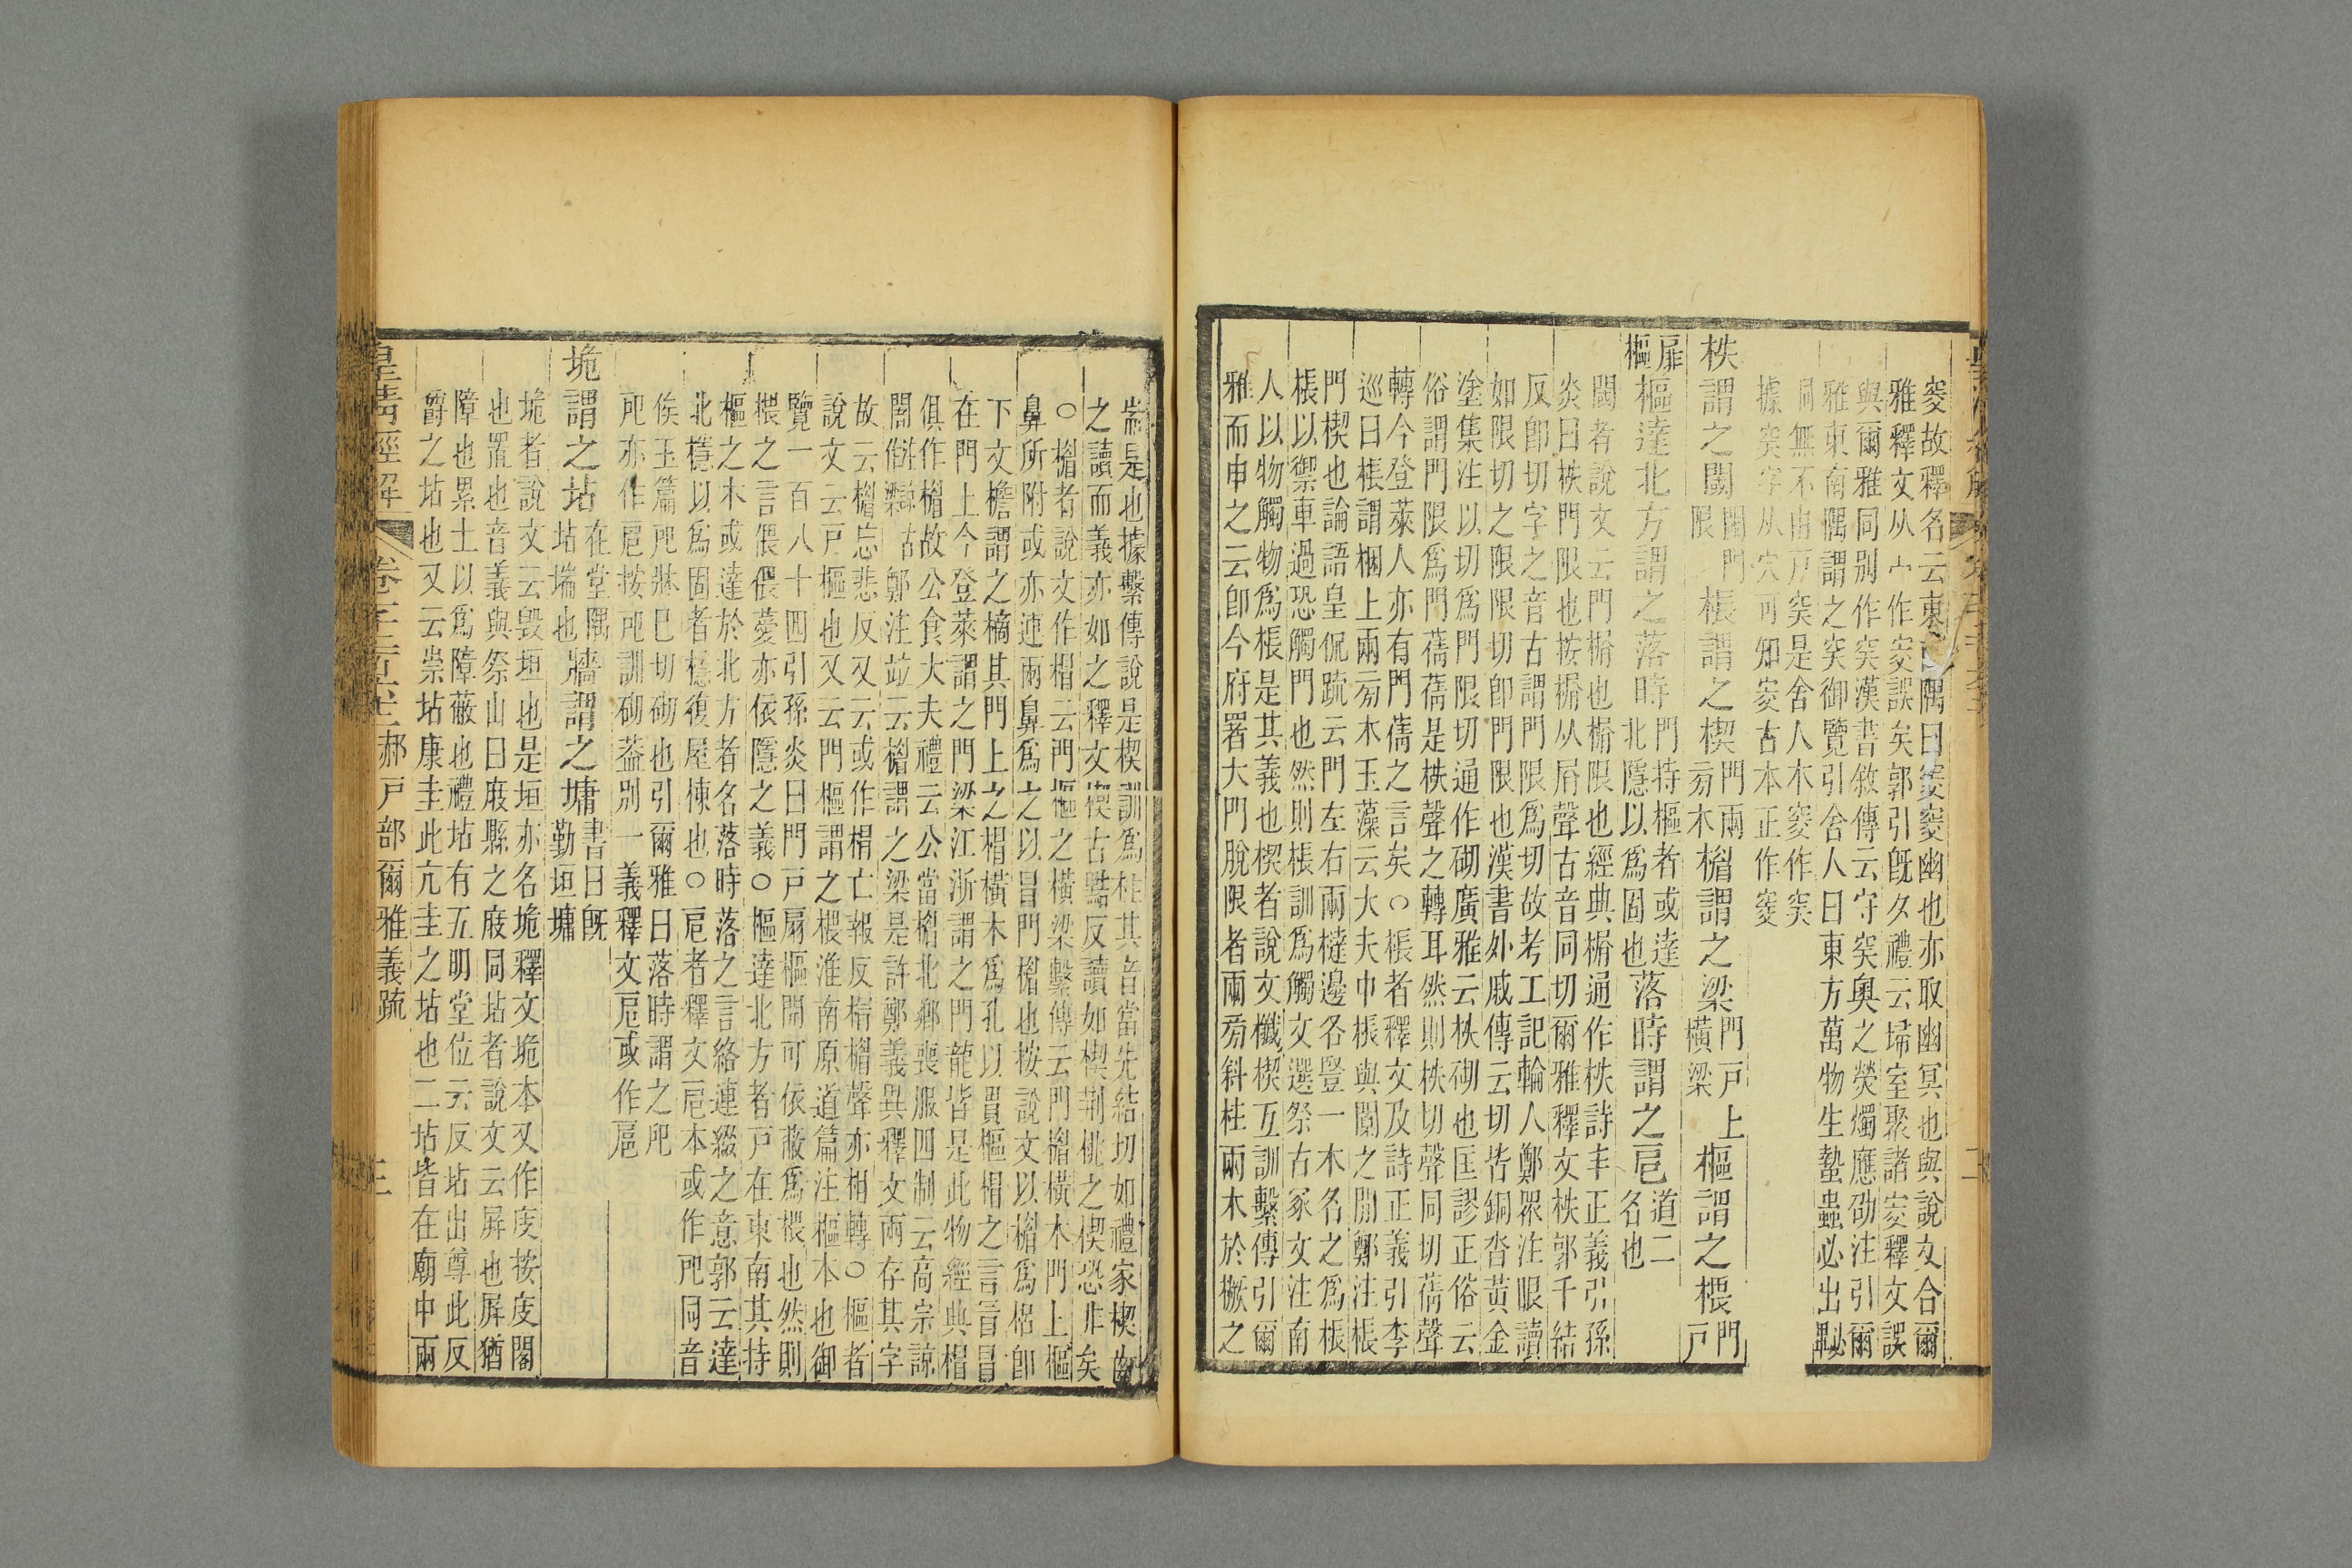 窔故釋名云東南隅曰窔窔幽也亦取幽冥也與說文合爾
雅釋文从宀作㝔誤矣郭引旣夕禮云埽室聚諸㝔釋文誤
與爾雅同別作穾漢書敘傳云守穾奧之熒燭應劭注引爾
雅東南隅謂之穾御覽引舍人曰東方萬物生蟄蟲必出
無不由戶穾是舍人本窔作穾
據穾字从穴可知㝔古本正作窔
柣謂之閾閾門限棖謂之楔門兩旁木楣謂之梁門戶上橫梁樞謂之椳門戶
扉樞樞達北方謂之落時門持樞者或達北隱以為固也落時謂之戹道二名也
閾者說文云門榍也榍限也經典榍通作柣詩丰正義引孫
炎曰柣門限也按榍从屑聲古音同切爾雅釋文柣郭千結
反卽切字之音古謂門限為切故考工記輪人鄭眾注眼讀
如限切之限限切卽門限也漢書外戚傳云切皆銅沓黃金
塗集注以切為門限切通作砌廣雅云柣砌也匡謬正俗云
俗謂門限為門蒨蒨是柣聲之轉耳然則柣切聲同切蒨聲
轉今登萊人亦有門蒨之言矣○棖者釋文及詩正義引李
巡曰棖謂梱上兩旁木玉藻云大夫中棖與闑之閒鄭注棖
門楔也論語皇侃疏云門左右兩橽邊各豎一木名之為棖
棖以禦車過恐觸門也然則棖訓為觸文選祭古冢文注南
人以物觸物為棖是其義也楔者說文櫼楔互訓繫傳引爾
雅而申之云卽今府署大門脫限者兩旁斜柱兩木於橛之
耑是也據繫傳說是楔訓為柱其音當先結切如禮家楔齒
之讀而義亦如之釋文楔古黠反讀如楔荆桃之楔恐非矣
○楣者說文作楣云門樞之橫梁繫傳云門楣橫木門上樞
鼻所附或亦連兩鼻為之以冒門楣也按說文以楣為梠卽
下文檐謂之樀其門上之楣橫木為孔以貫樞楣之言冒冒
在門上今登萊謂之門梁江浙謂之門龍皆是此物經典楣
俱作楣故公食大夫禮云公當楣北鄉喪服四制云高宗諒
闇鄭注竝云楣謂之梁是許鄭義異釋文兩存其字
故云楣忘悲反又云或作楣亡報反楣楣聲亦相轉○樞者
說文云戶樞也又云門樞謂之椳淮南原道篇注樞本也御
覽一百八十四引孫炎曰門戶扇樞開可依蔽為椳也然則
椳之言偎偎薆亦依隱之義○樞達北方者戶在東南其持
樞之木或達於北方者名落時落之言絡連綴之意郭云達
北穩以為固者穩復屋棟也○戹者釋文戹本或作戺同音
俟玉篇戺牀巳切砌也引爾雅曰落時謂之戺
戺亦作戹按戺訓砌葢別一義釋文戹或作扈
垝謂之坫在堂隅坫㙐也牆謂之墉書曰旣勤垣墉
垝者說文云毀垣也是垣亦名垝釋文垝本又作庋按庋閣
也置也音義與祭山曰庪縣之庪同坫者說文云屏也屏猶
障也累土以為障蔽也禮坫有五明堂位云反坫出尊此反
爵之坫也又云崇坫康圭此亢圭之坫也二坫皆在廟中兩
皇清經解
郝戶部爾雅義疏
三